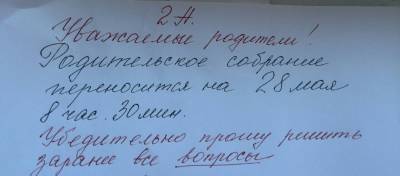 2 А.
Уважаемые родители!
Родительское собрание
переносится на 28 мая
8 час. 30 мин.
Убедительно прошу решить
заранее все вопросы